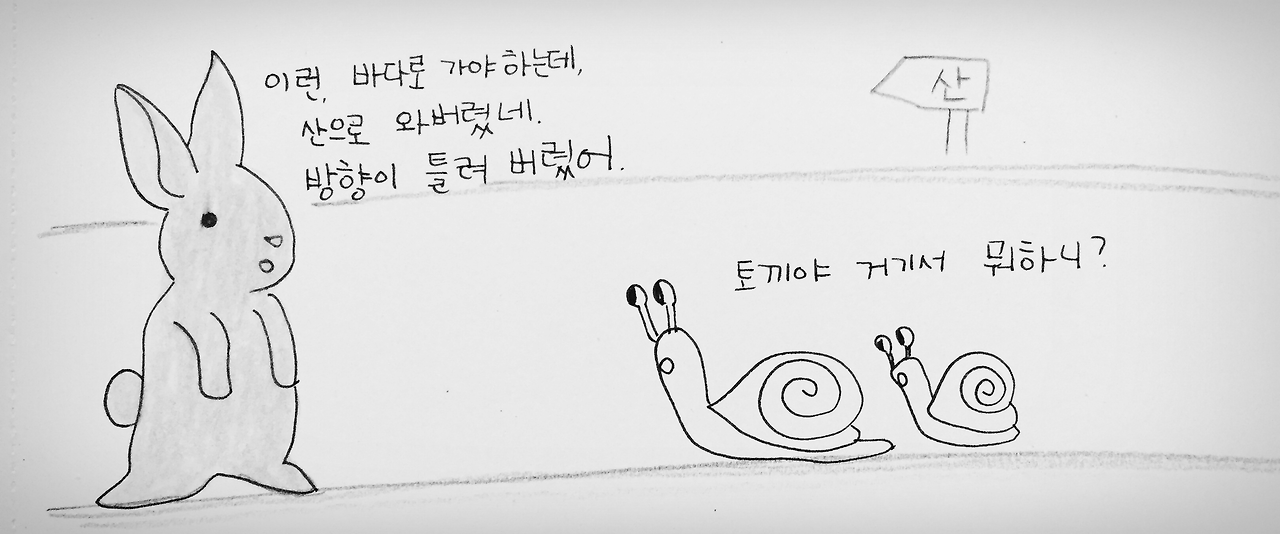 이런, 바다로 가야하는데,
산으로 와버렸네.
방향이 틀려 버렸어.
산
토끼야 거기서 뭐하니?